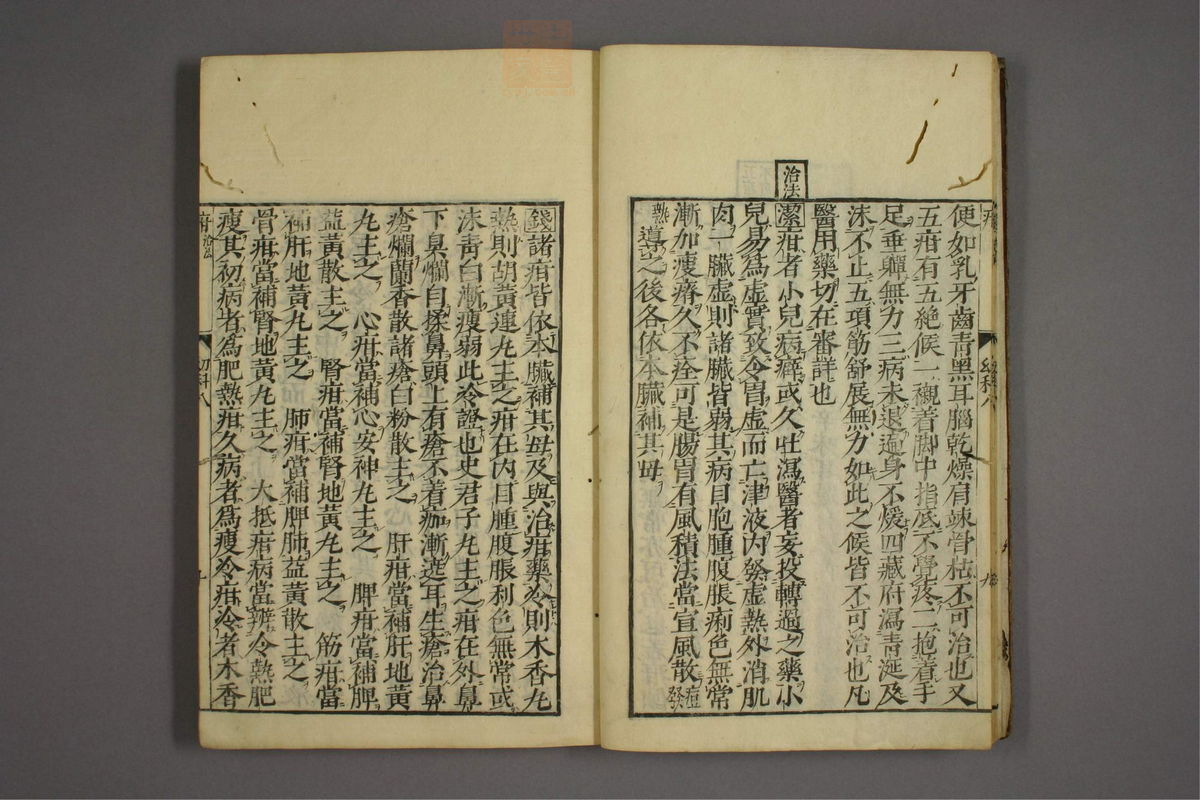 便如乳牙齒青黑耳腦乾燥肩竦骨枯不可治也又
五疳有五絶候一襯着脚中指底不覺疼二抱着手
足垂軃無力三病未退遍身不煖四藏府瀉青涎及
沫不止五項筋舒展無力如此之候皆不可治也凡
醫用藥切在審詳也
治法
潔疳者小兒病癖或久吐瀉醫者妄投轉過之藥小
兒易爲虛實致令胃虛而亡津液内發虛熱外消肌
肉一臟虛則諸臟皆弱其病目胞腫腹脹痢色無常
漸加瘦瘠久不痊可是腸胃有風積法當宣風散
導之後各依本臟補其母
錢諸疳皆依本臟補其母及與治疳藥冷則木香丸
熱則胡黃連丸主之疳在内目腫腹脹利色無常或
沫青白漸瘦弱此冷證也史君子丸主之疳在外鼻
下臭爛自揉鼻頭上有瘡不着痂漸遶耳生瘡治鼻
瘡爛蘭香散諸瘡白粉散主之　肝疳當補肝地黃
丸主之　心疳當補心安神丸主之　脾疳當補脾
益黃散主之　腎疳當補腎地黃丸主之　筋疳當
補肝地黃丸主之　肺疳當補脾肺益黃散主之
骨疳當補腎地黃丸主之　大抵疳病當辨冷熱肥
瘦其初病者爲肥熱疳久病者爲瘦冷疳冷者木香
疳 治法
幼科八
九